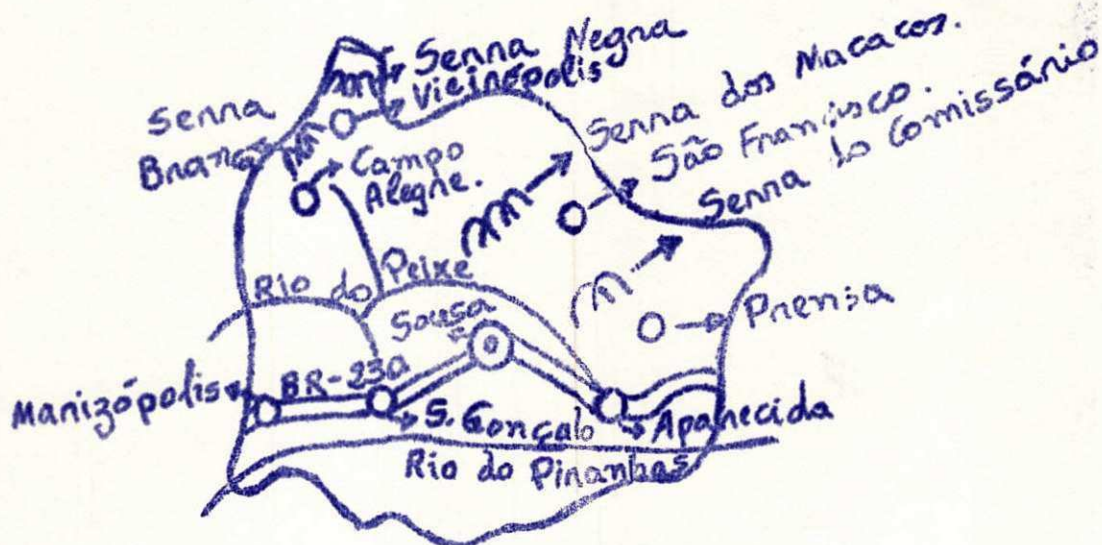 Serra Negra
Vieirópolis
Serra
Branca
Campo
Alegre.
Serra dos Macacos.
São Francisco.
Serra do Comissário
Rio do Peixe
Sousa
Prensa
Marizópolis
BR-230
S. Gonçalo
Aparecida
Rio do Piranhas